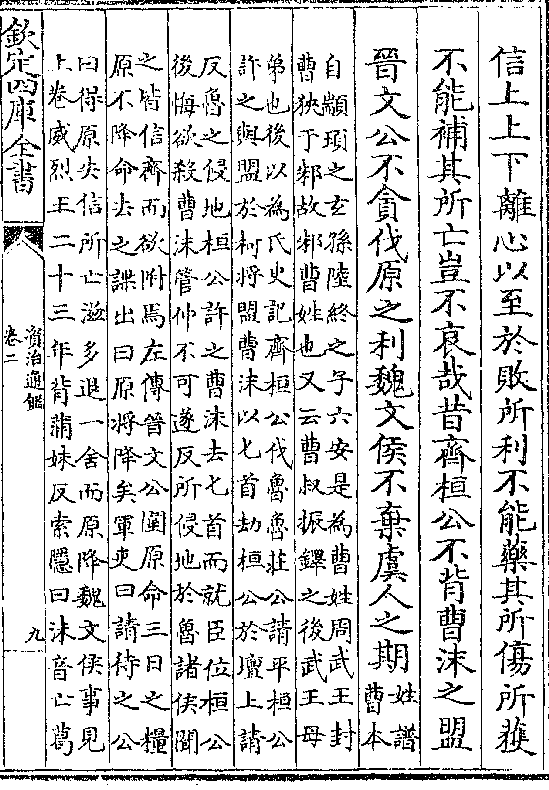 信上上下離心以至於敗所利不能藥其所傷所獲
不能補其所亡豈不哀哉昔齊桓公不背曹沫之盟
晉文公不貪伐原之利魏文侯不棄虞人之期
姓譜
曹本
自顓頊之玄孫陸終之子六安是為曹姓周武王封
曹狹于邾故邾曹姓也又云曹叔振鐸之後武王母
弟也後以為氏史記齊桓公伐魯魯莊公請平桓公
許之與盟於柯將盟曹沫以匕首劫桓公於壇上請
反魯之侵地桓公許之曹沫去匕首而就臣位桓公
後悔欲殺曹沫管仲不可遂反所侵地於魯諸侯聞
之皆信齊而欲附焉左傳晉文公圍原命三日之糧
原不降命去之諜出曰原將降矣軍吏曰請待之公
曰得原失信所亡滋多退一舍而原降魏文侯事見
上卷威烈王二十三年背蒲妹反索隱曰沫音亡葛
欽定四庫全書
資治通鑑
卷二
九